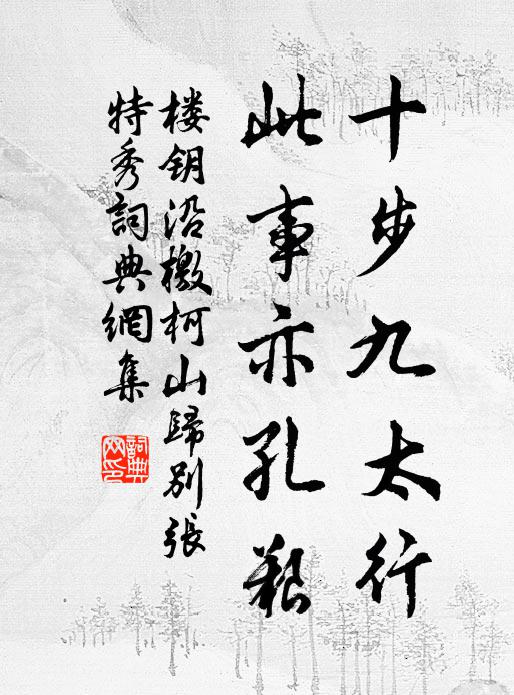 十步九太行
此事亦孔艱
楼钥沿檄柯山歸别張
特秀詞典網集
詞典网印